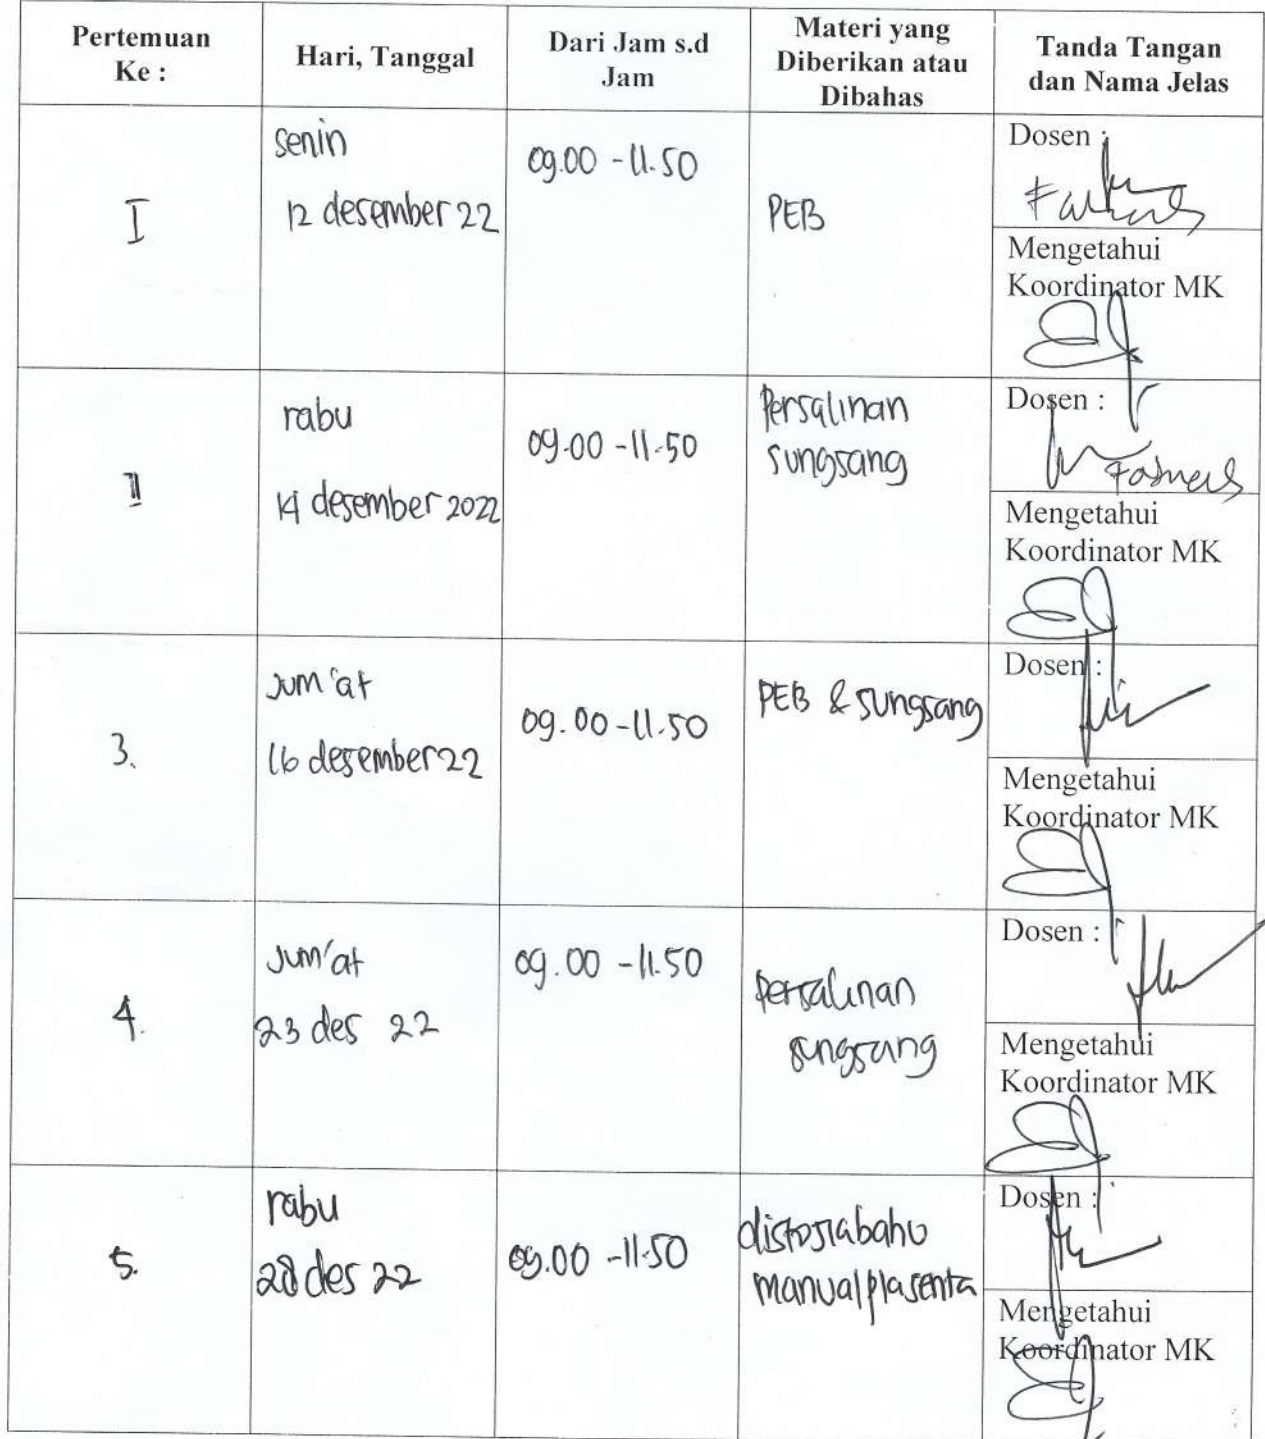 Pertemuan
Ke :
Hari, Tanggal
Dari Jam s.d
Jam
Materi yang
Diberikan atau
Dibahas
Tanda Tangan
dan Nama Jelas
I
senin
12 desember 22
09.00 - 11.50
PEB
Dosen :
Mengetahui
Koordinator MK
II
rabu
14 desember 2022
09.00 - 11.50
Persalinan
sungsang
Dosen :
Mengetahui
Koordinator MK
3.
Jum'at
16 desember 22
09.00 - 11.50
PEB & sungsang
Dosen :
Mengetahui
Koordinator MK
4.
Jum'at
23 des 22
09.00 - 11.50
Persalinan
sungsang
Dosen :
Mengetahui
Koordinator MK
5.
rabu
28 des 22
09.00 - 11.50
distosiabahu
manual plasenta
Dosen :
Mengetahui
Koordinator MK